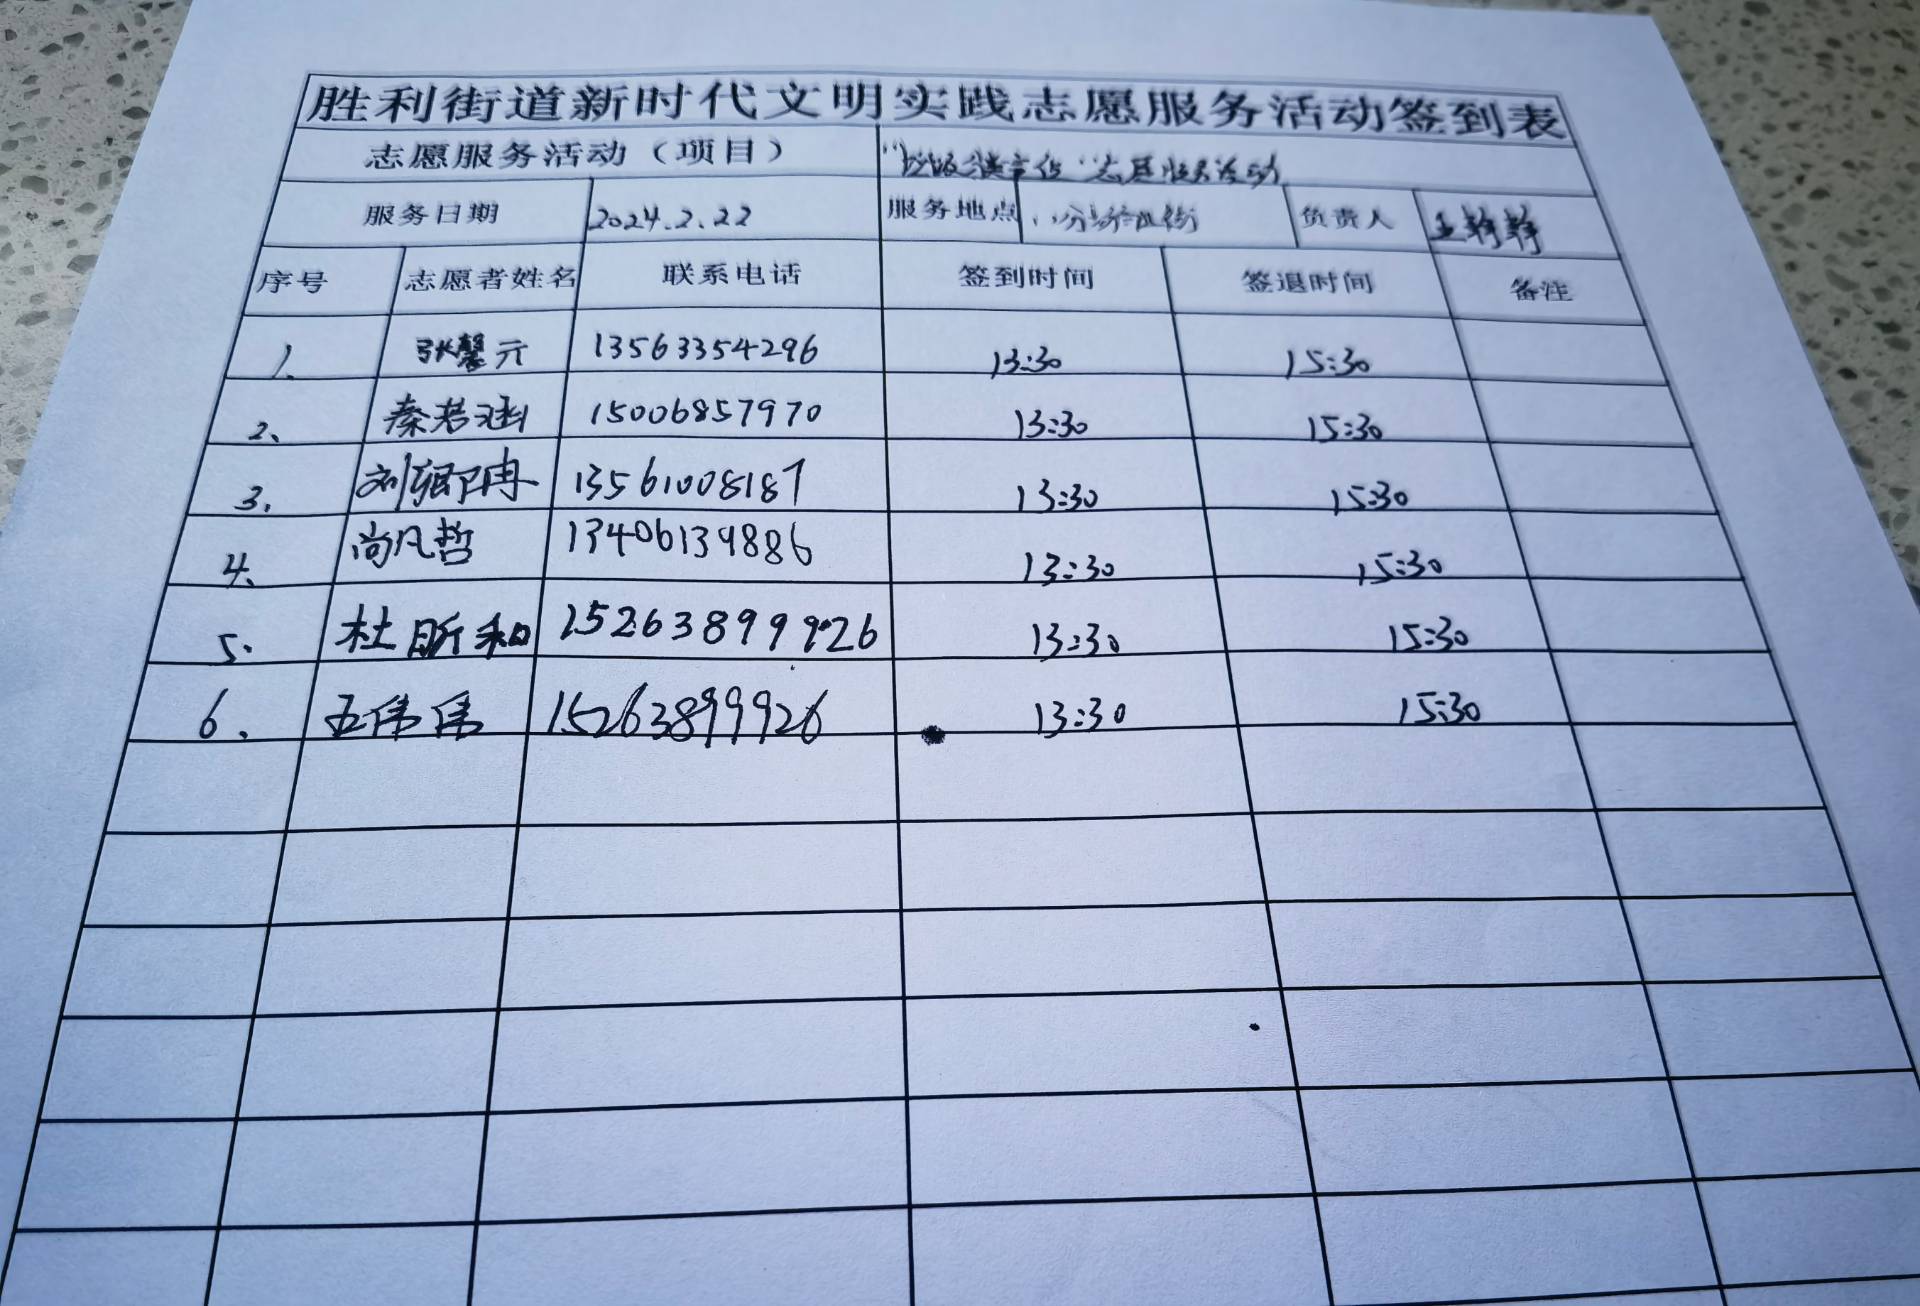 胜利街道新时代文明实践志愿服务活动签到表
志愿服务活动（项目） 志愿服务活动
服务日期 2024.2.22 服务地点 负责人 王静静
序号 志愿者姓名 联系电话 签到时间 签退时间 备注
1、 张馨元 13563354296 13:30 15:30
2、 秦若涵 15006857970 13:30 15:30
3、 刘 13561008187 13:30 15:30
4、 尚凡哲 13406139886 13:30 15:30
5. 杜昕和 15263899926 13:30 15:30
6、 王伟伟 15263899926 13:30 15:30